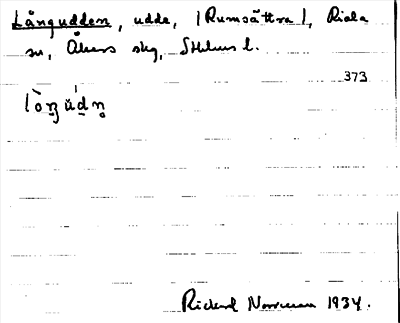 Långudden, udde, (Rumsättra), Riala
sn, Åkers skg, Sthlms l.
373
Richard Norrman 1934.